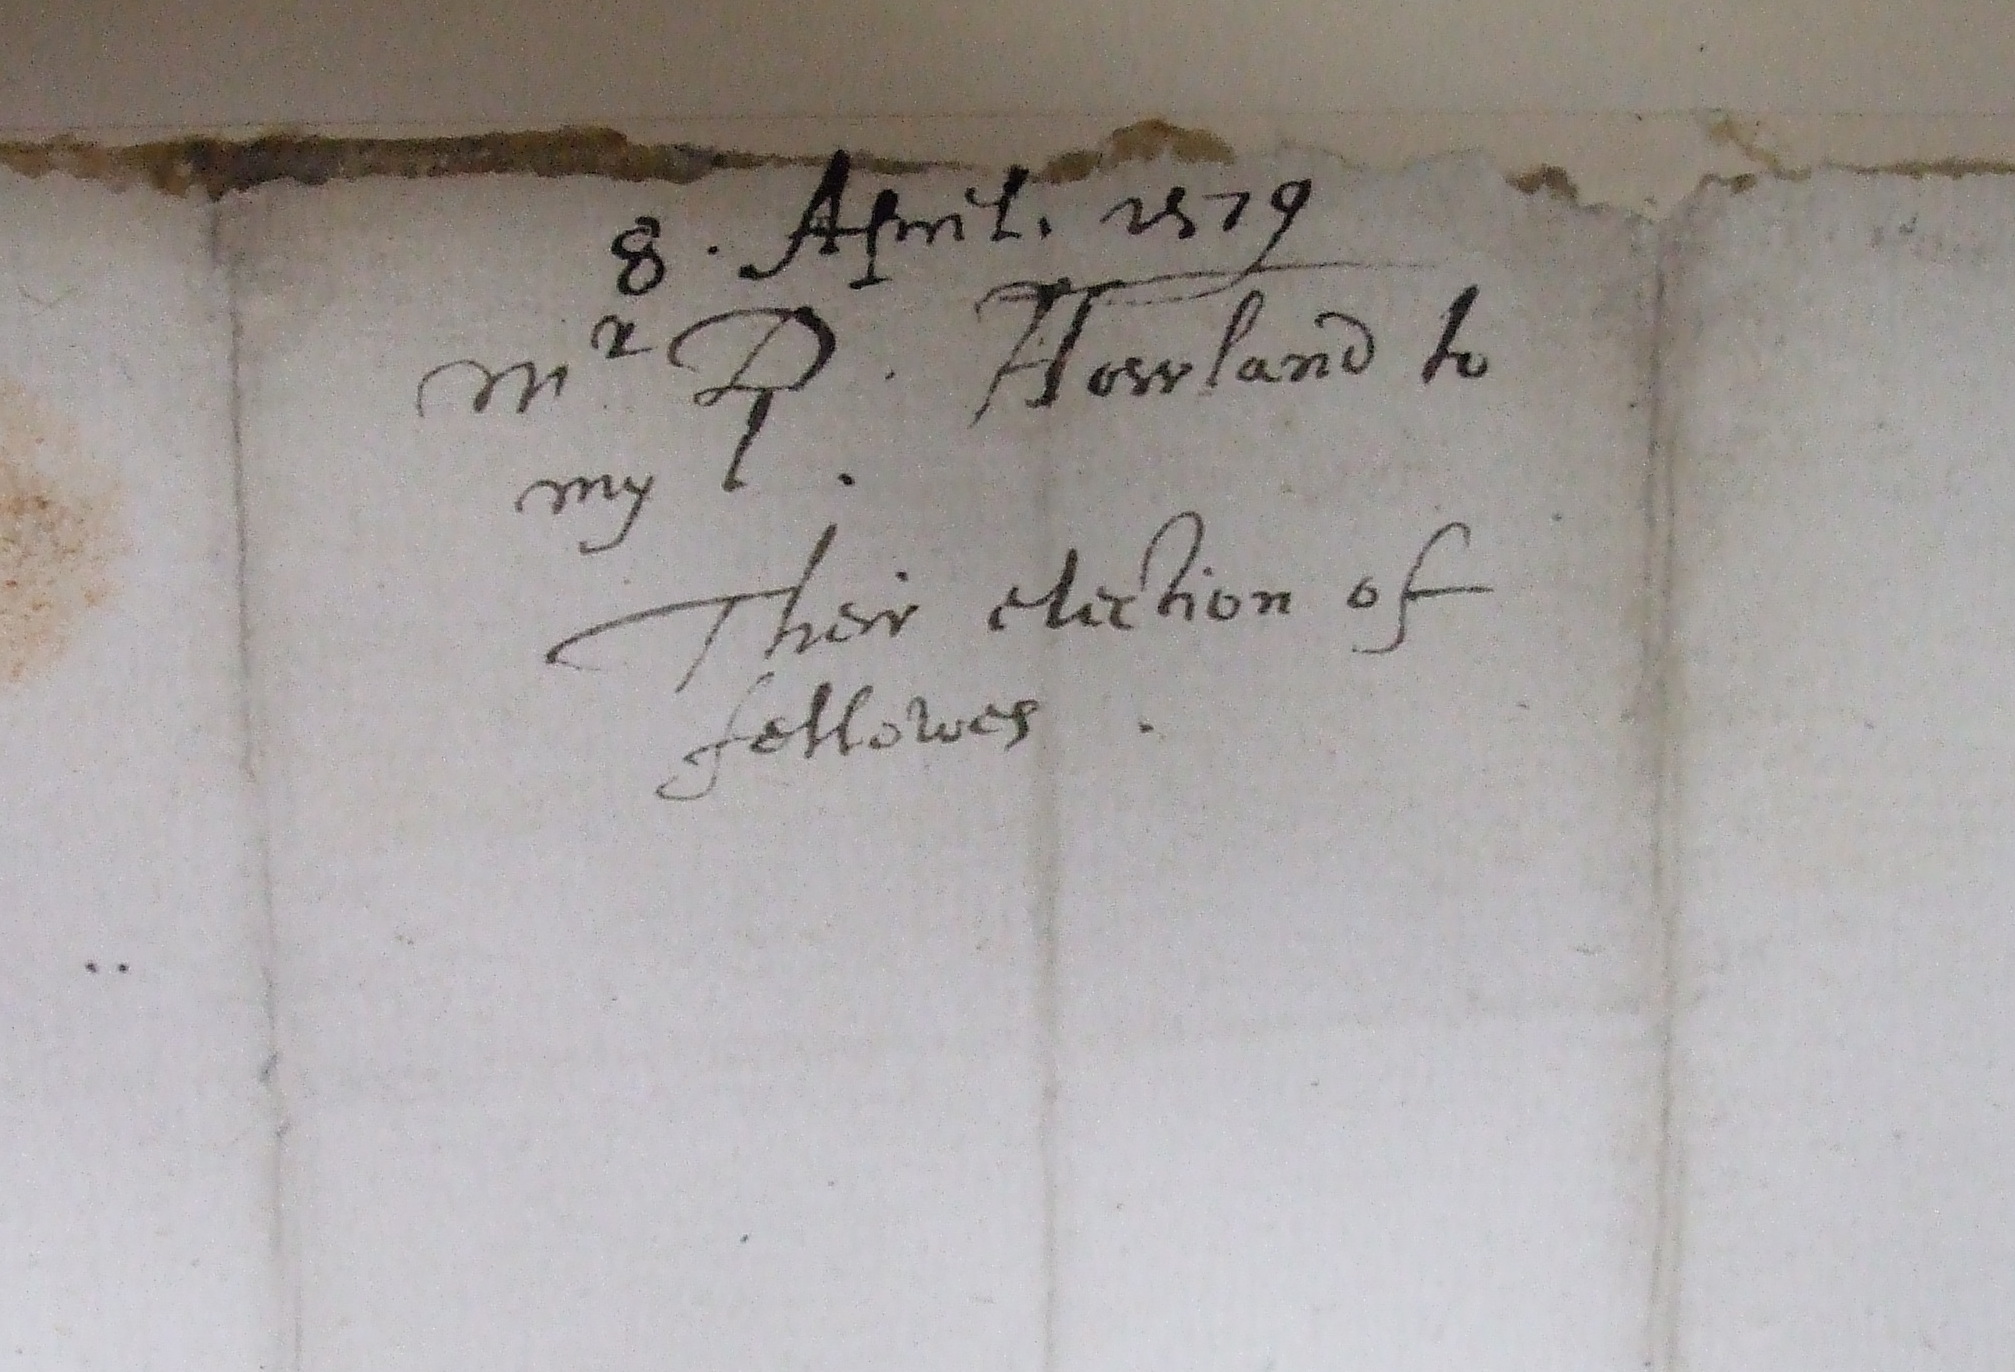 8. April. 1579
Mr D. Howland to
my l.
Their election of
fellowes.